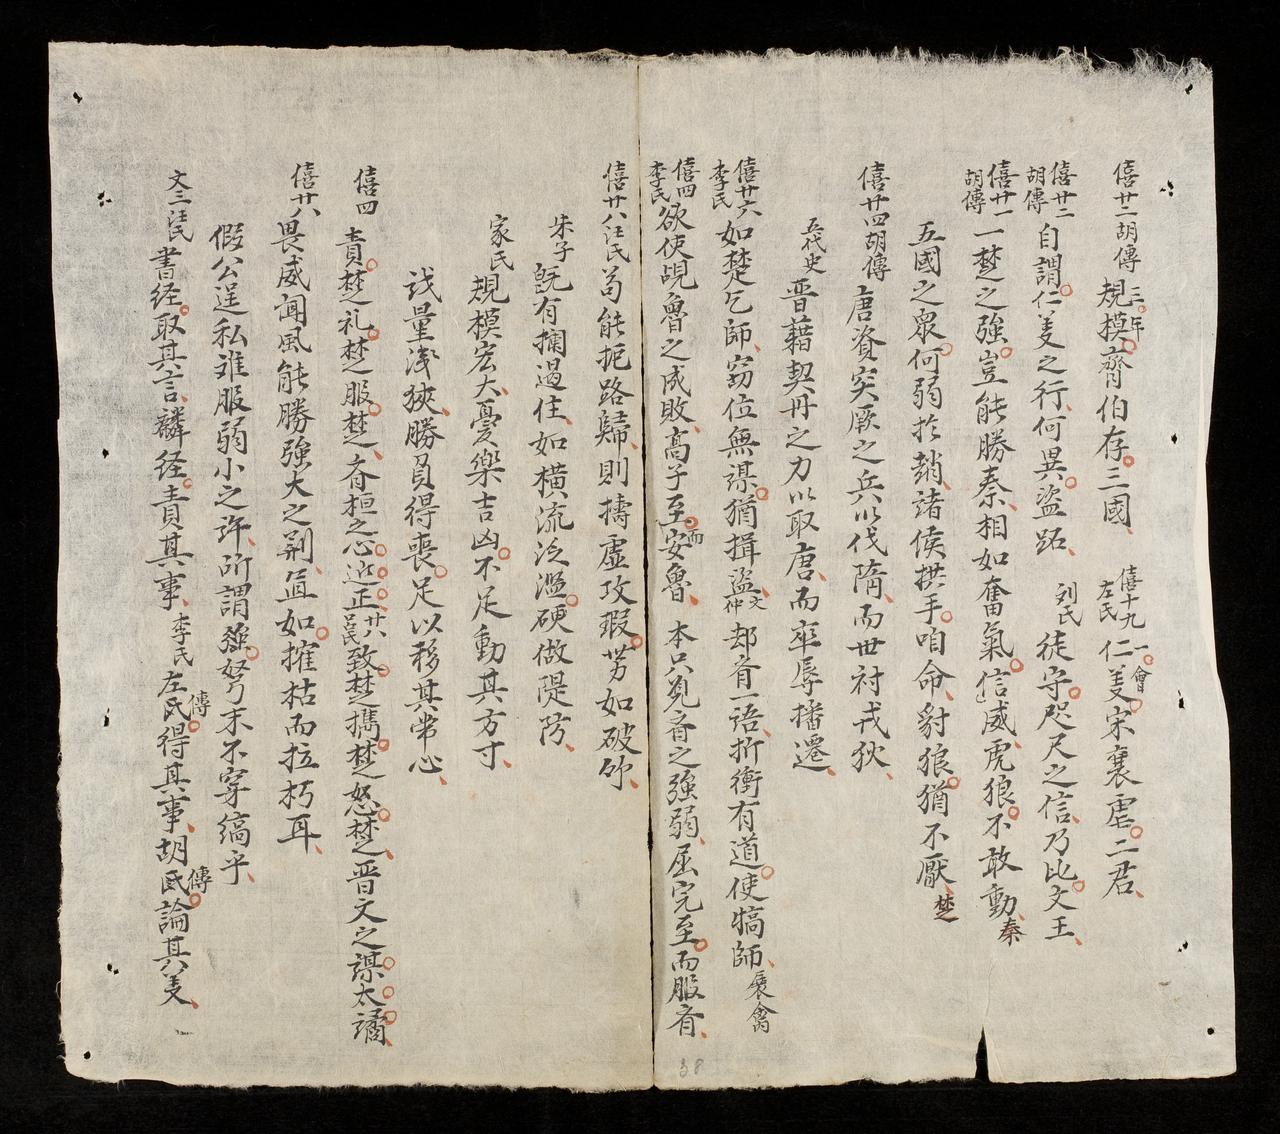 僖廿二胡傳 規模三年齊伯存三國 僖十九左氏 仁義一會宋襄虐二君
僖廿二胡傳 自謂仁義之行何異盜跖 列氏 徒守咫尺之信乃比文王
僖廿一胡傳 一楚之強豈能勝秦相如奮氣信威虎狼不敢動秦
五國之衆何弱於趙諸侯拱手咱命豺狼猶不厭楚
僖廿四胡傳 唐資突厥之兵以伐隋而世衬戎狄
五代史 晋藉契丹之力以取唐而卒辱播遷
僖廿六李氏 如楚乞師窃位無謀猶揖盜文仲 却斉一語折衝有道使犒師展禽
僖四李氏 欲使覘魯之成敗高子至而安魯 本只覓斉之強弱屈完至而服斉
僖廿八汪氏 苟能扼路歸則擣虚攻瑕勢如破竹
朱子 既有攔遏住如橫流泛濫硬做隄防
家氏 規模宏大憂樂吉凶不足動其方寸
戏量浅狹勝負得喪足以移其常心
僖四 責楚礼楚服楚斉桓之心近正 廿八呂氏 致楚攜楚怒楚晋文之謀太譎
僖廿八 畏威聞風能勝強大之荆直如摧枯而拉朽耳
假公逞私难服弱小之許所謂強弩末不穿縞乎
文二汪氏 書経取其言麟経責其事 李氏 左氏傳得其事胡氏傳論其義
38